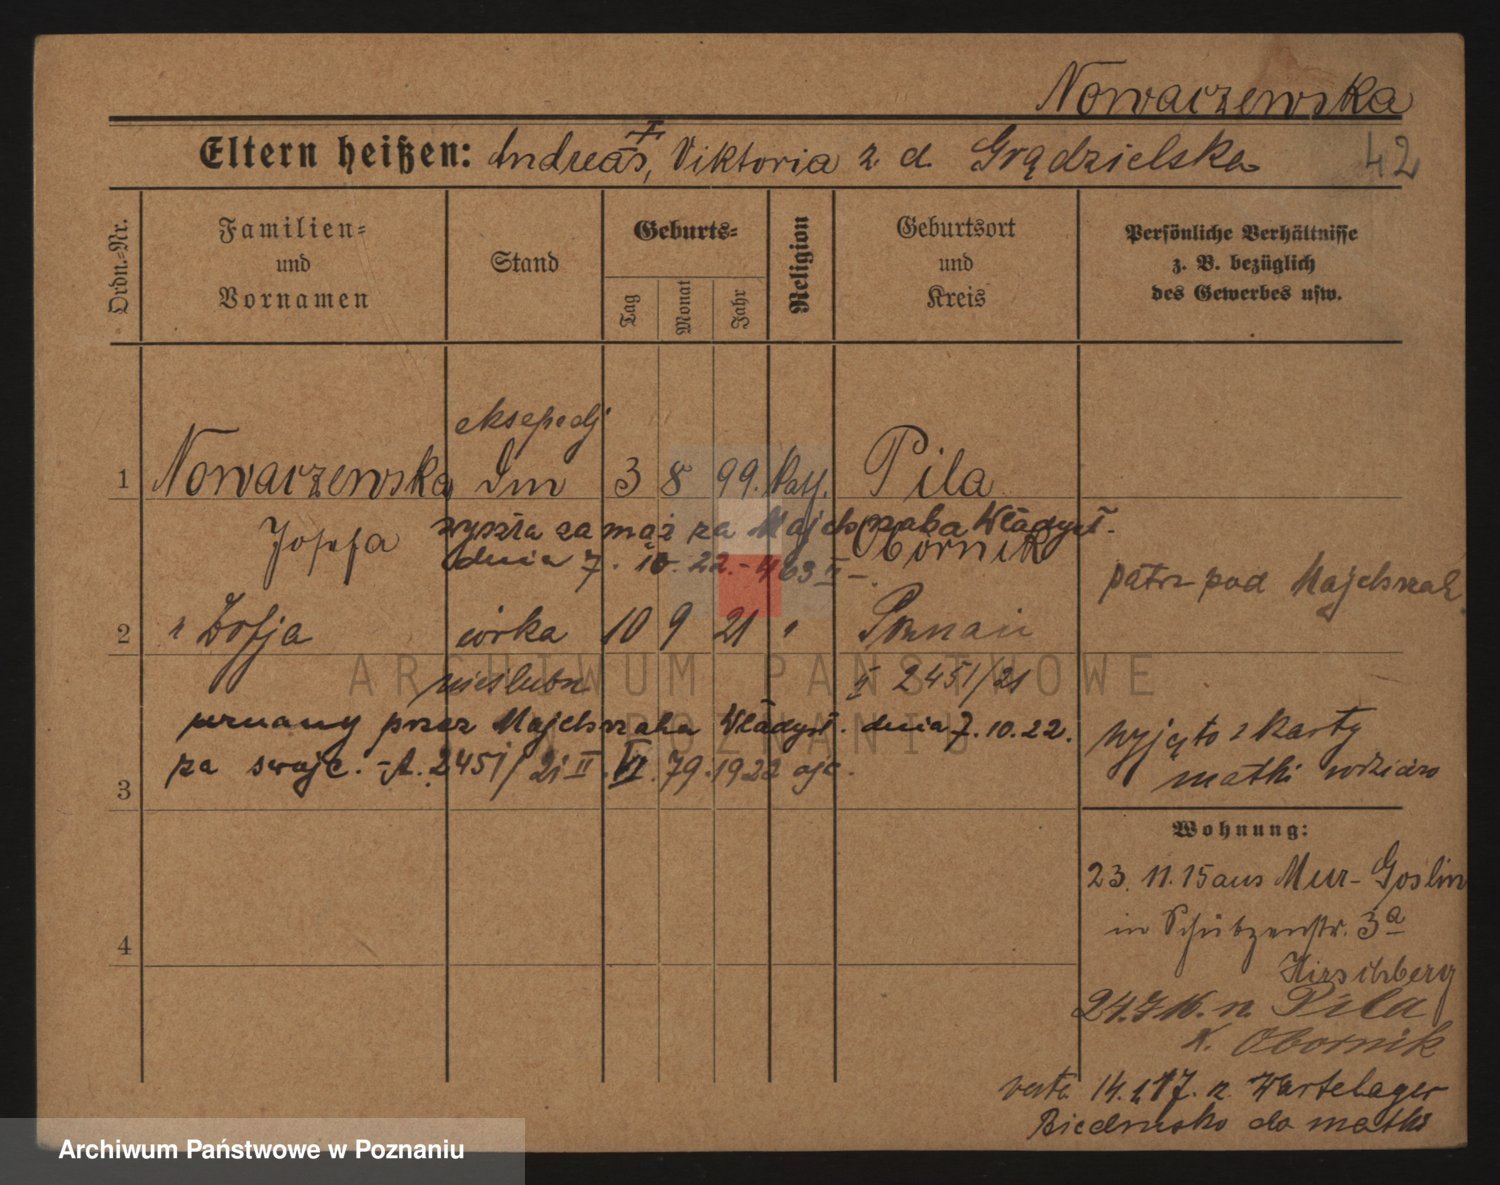 Nowaczewska
42
Eltern heißen: Andreas †, Viktoria z d. Grądzielska
Ordn.=Nr.
Familien=
und
Vornamen
Stand
Geburts=
Tag
Monat
Jahr
Religion
Geburtsort
und
Kreis
Persönliche Verhältnisse
z. B. bezüglich
des Gewerbes usw.
eksepedj
1 Nowaczewska 3 8 99. Kath. Pila
Josefa
wyszła za mąż za Majchrzaka Władysł.
Obornik
dnia 7. 10. 22. - 463 II -.
patrz pod Majchrzak
2 " Zofja córka 10 9 21 " Poznań
nieślubn
II 2451/21
uznany przez Majchrzaka Władysł. dnia 7. 10. 22.
za swoje. - A. 2451/21 II. VI. 79. 1922
wyjęto z karty
matki
3
Wohnung:
23. 11. 15 aus Mur-Goslin
in Schützenstr. 3a
Hirschberg
24.7.16. n. Pila
K. Obornik
14. 1. 17. z. Wartelager
Biedrusko do matki
4
ARCHIWUM PAŃSTWOWE
W POZNANIU
Archiwum Państwowe w Poznaniu